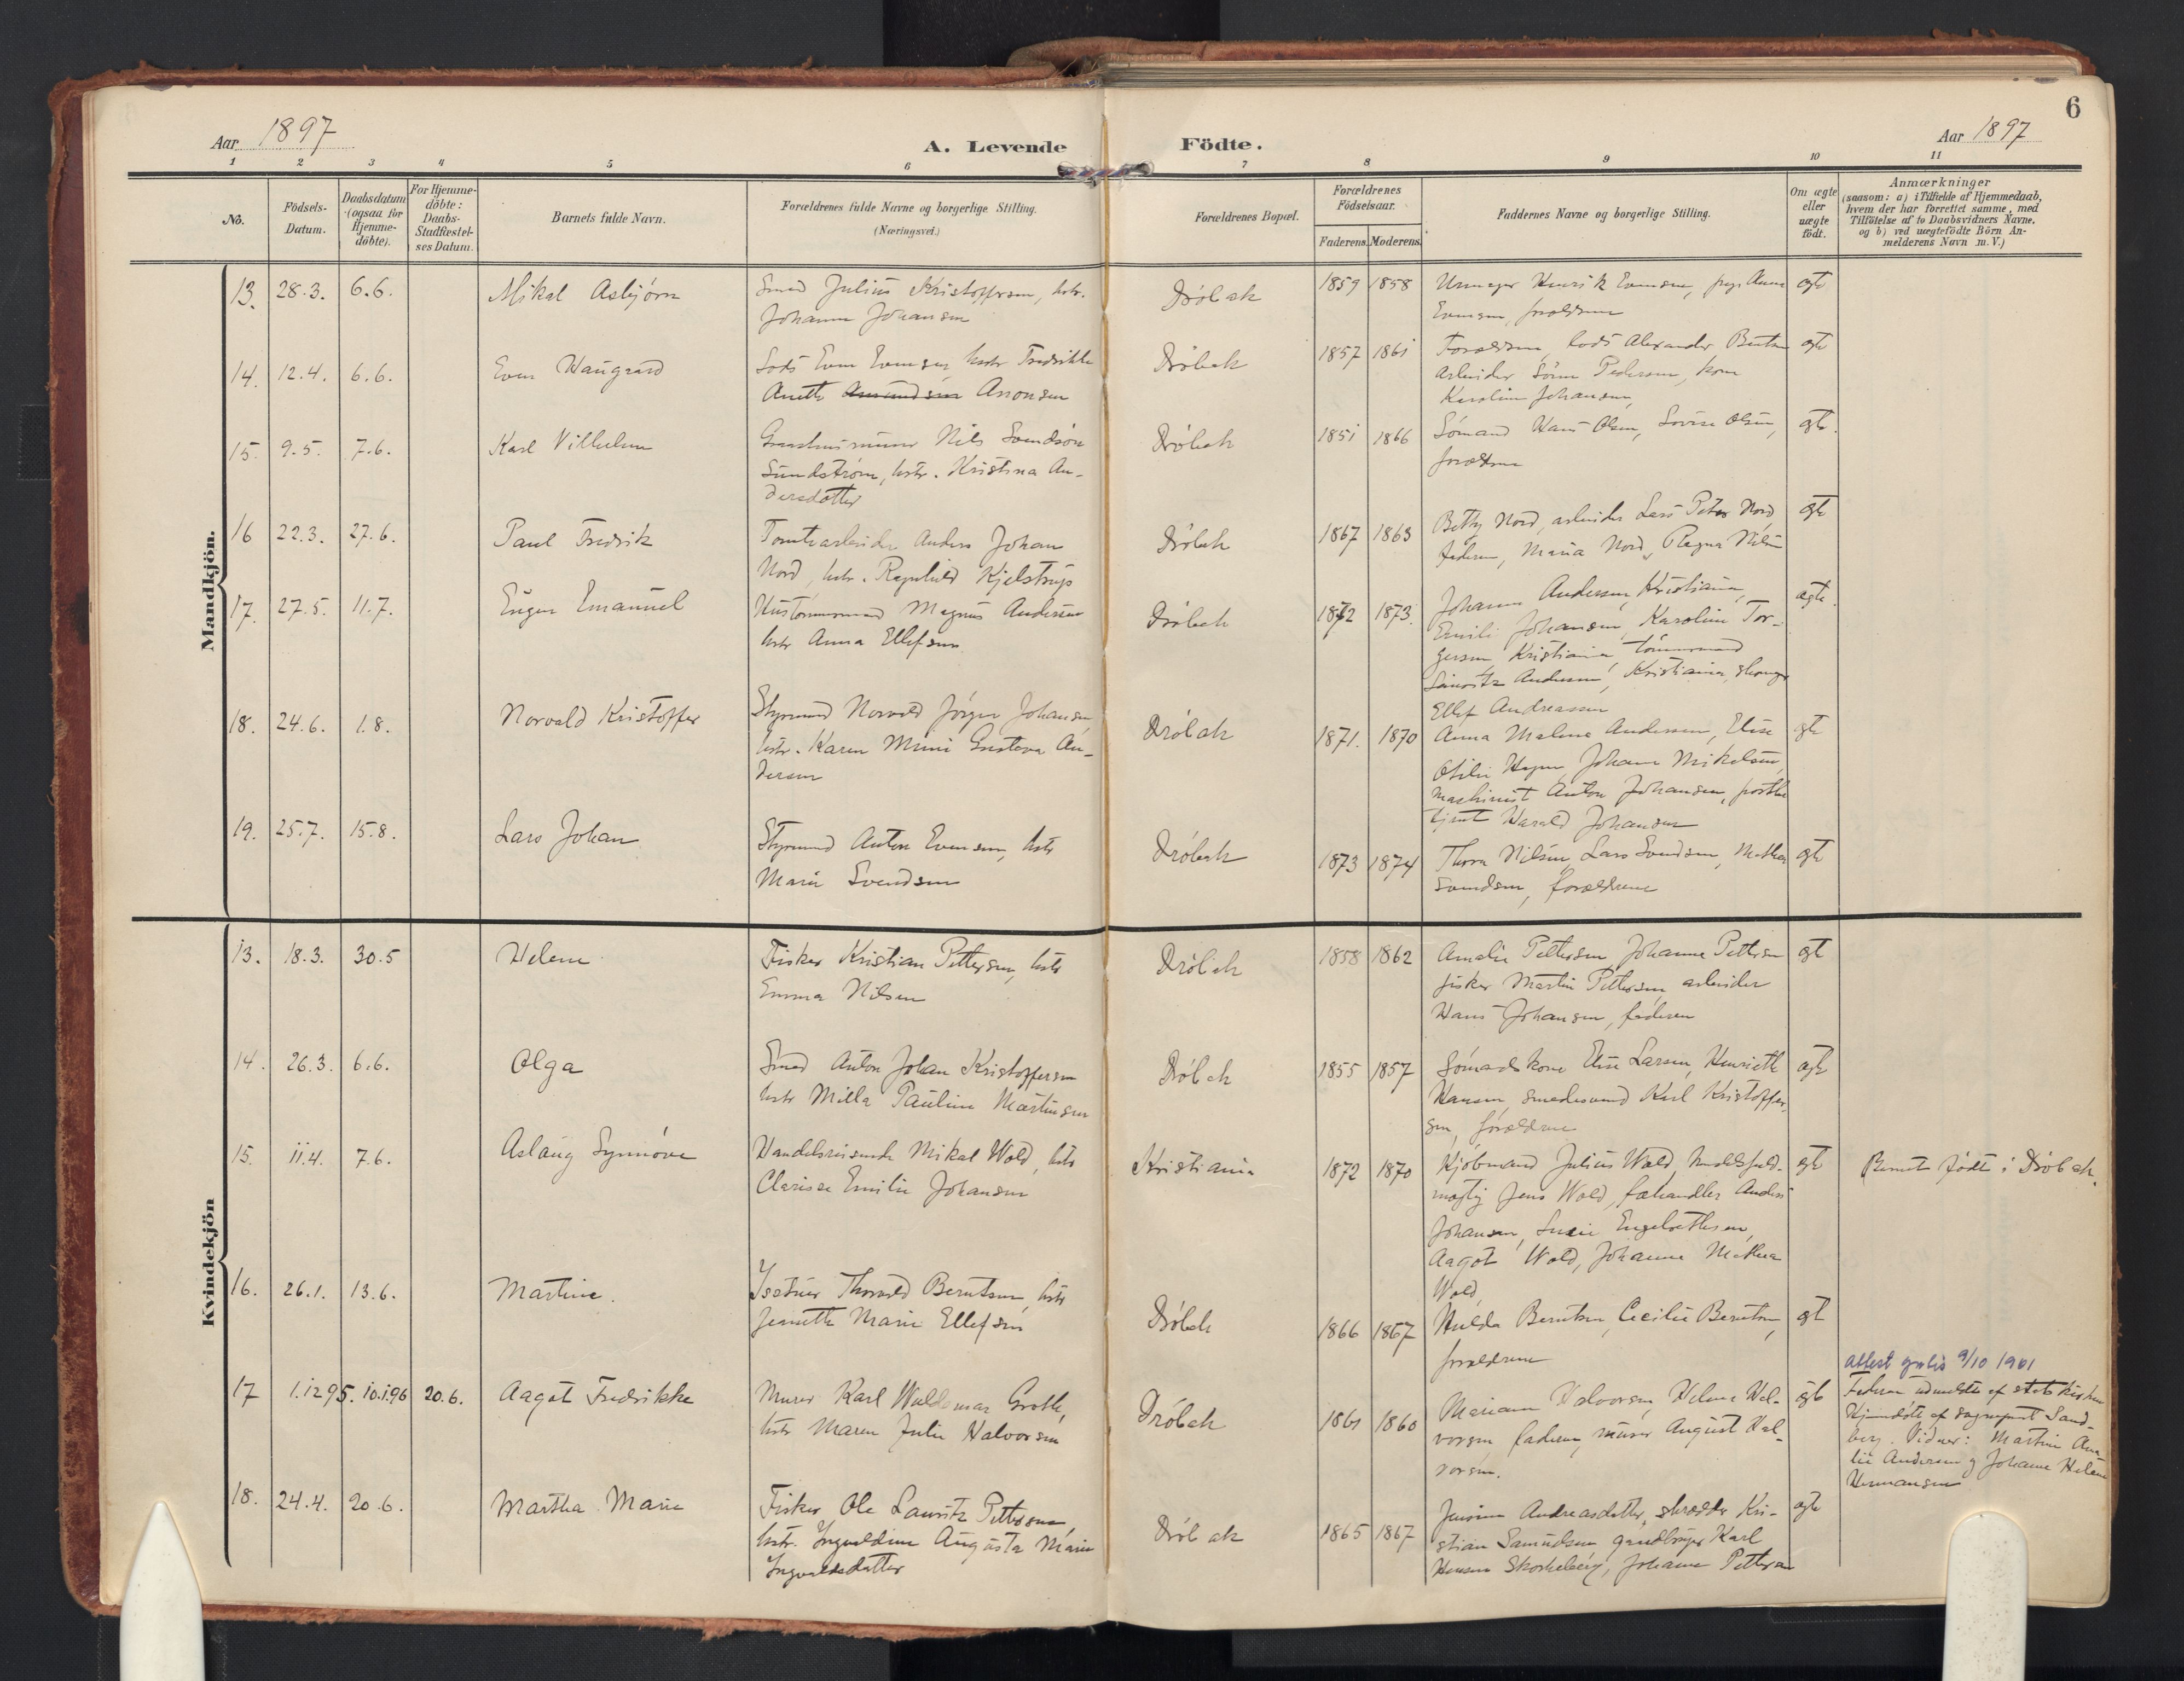 6
Aar 1897
A. Levende Födte.
Aar 1897
1 2 3 4 5 6 7 8 9 10 11
Nô.
Födsels-
Datum.
Daabsdatum
(ogsaa for
Hjemme-
döbte).
For Hjemme-
döbte:
Daabs-
Stadfæstel-
ses Datum.
Barnets fulde Navn.
Forældrenes fulde Navne og borgerlige Stilling.
(Næringsvei.)
Forældrenes Bopæl.
Forældrenes
Födselsaar.
Faderens. Moderens.
Faddernes Navne og borgerlige Stilling.
Om ægte
eller
uægte
födt.
Anmærkninger
(saasom: a) i Tilfælde af Hjemmedaab,
hvem der har forrettet samme, med
Tilföielse af to Daabsvidners Navne,
og b) ved uægtefödte Börn An-
melderens Navn m.V.)
Mandkjön.
13. 28.3. 6.6. Mikal Asbjörn
Smed Julius Kristoffersen, hstr.
Johanne Johansen
Dröbak 1859 1858
Urmager Henrik Evensen, Anna
Evensen, forældrene
ægte
14. 12.4. 6.6. Even Haugaard
Lods Even Evensen hstr Fredrikke
Anette Amundsen Aronsen
Dröbak 1857 1861
Forældrene, lods Alexander Berntsen
arbeider Sörn Pedersen, kone
Karoline Johansen,
ægte
15. 9.5. 7.6. Karl Vilhelm
Nils Svendsön
Sundström, hstr. Kristina An-
dersdatter
Dröbak 1851 1866
Sömand Hans Olsen, Lovise Olsen,
forældrene
ægte.
16 22.3. 27.6. Paul Fredrik
Tomtearbeider Anders Johan
Nord, hstr. Ragnhild Kjelstrup
Dröbak 1867 1863
Betty Nord, arbeider Lars Peter Nord
faderen, Maria Nord, Ragna Nilsen
ægte
17. 27.5. 11.7. Eugen Emanuel
Hustömmermand Magnus Andersen
hstr Anna Ellefsen
Dröbak 1872 1873.
Johanne Andersen, Kristiania,
Emilie Johansen, Karoline Tor-
gersen, Kristiania, tömmermand
Lauritz Andersen, Kristiania,
Ellef Andreassen
ægte.
18. 24.6. 1.8. Norvald Kristoffer
Styrmand Norvald Jörgen Johansen
hstr. Karen Mimi Gustava An-
dersen
Dröbak 1871. 1870
Anna Malene Andersen, Elise
Otilie Hagen, Johanne Mikelsen,
maskinist Anton Johansen,
Harald Johansen
ægte
19. 25.7. 15.8. Lars Johan
Styrmand Anton Evensen, hstr
Marie Svendsen
Dröbak 1873 1874
Thora Nilsen, Lars Svendsen, Mathea
Svendsen, forældrene
ægte
Kvindekjön
13. 18.3. 30.5 Helene
Fisker Kristian Pettersen, hstr
Emma Nilsen
Dröbak 1858 1862
Amalie Pettersen, Johanne Pettersen
fisker Martin Pettersen, arbeider
Hans Johansen, faderen
ægte
14. 26.3. 6.6. Olga
Smed Anton Johan Kristoffersen
hstr Milla Pauline Martinsen
Dröbak 1855 1857
Sömandskone Elise Larsen, Henriette
Hansen, smedesvend Karl Kristoffer-
sen, forældrene
ægte
15. 11.4. 7.6. Aslaug Synnöve
Handelsreisende Mikal Wold, hstr
Clarisse Emilie Johansen
Kristiania 1872 1870
Kjöbmand Julius Wold, handelsfuld-
mægtig Jens Wold, fæhandler Anders
Johansen, Engebrethsen,
Aagot Wold, Johanne Mathea
Wold
ægte
Barnet födt i Dröbak.
16. 26.1. 13.6. Martine.
Thorvald Berntsen, hstr
Jeanette Marie Ellefsen
Dröbak 1866 1867
Hulda Berntsen, Cecilie Berntsen,
forældrene
ægte
17 1.12 95. 10.1.96 20.6. Aagot Fredrikke
Murer Karl Waldemar Groth,
hstr Maren Julie Halvorsen
Dröbak 1861 1860
Mariane Halvorsen, Helene Hal-
vorsen, faderen, murer August Hal-
vorsen.
ægte
Attest gratis 9/10 1901
Faderen udmeldt af statskirken
Hjemmedöbt af sogneprest Sand-
berg. Vidner: Martine Ama-
lie Andersen og Johanne Helene
Hermansen
18. 24.4. 20.6. Martha Marie
Fisker Ole Lauritz Pettersen
hstr. Ingvaldine Augusta Marie
Ingvaldsdatter
Dröbak 1865 1867
Andreasdatter, skrædder Kri-
stian Samuelsen, gaardbruger Karl
Hansen Skorkeberg, Johanne Pettersen
ægte